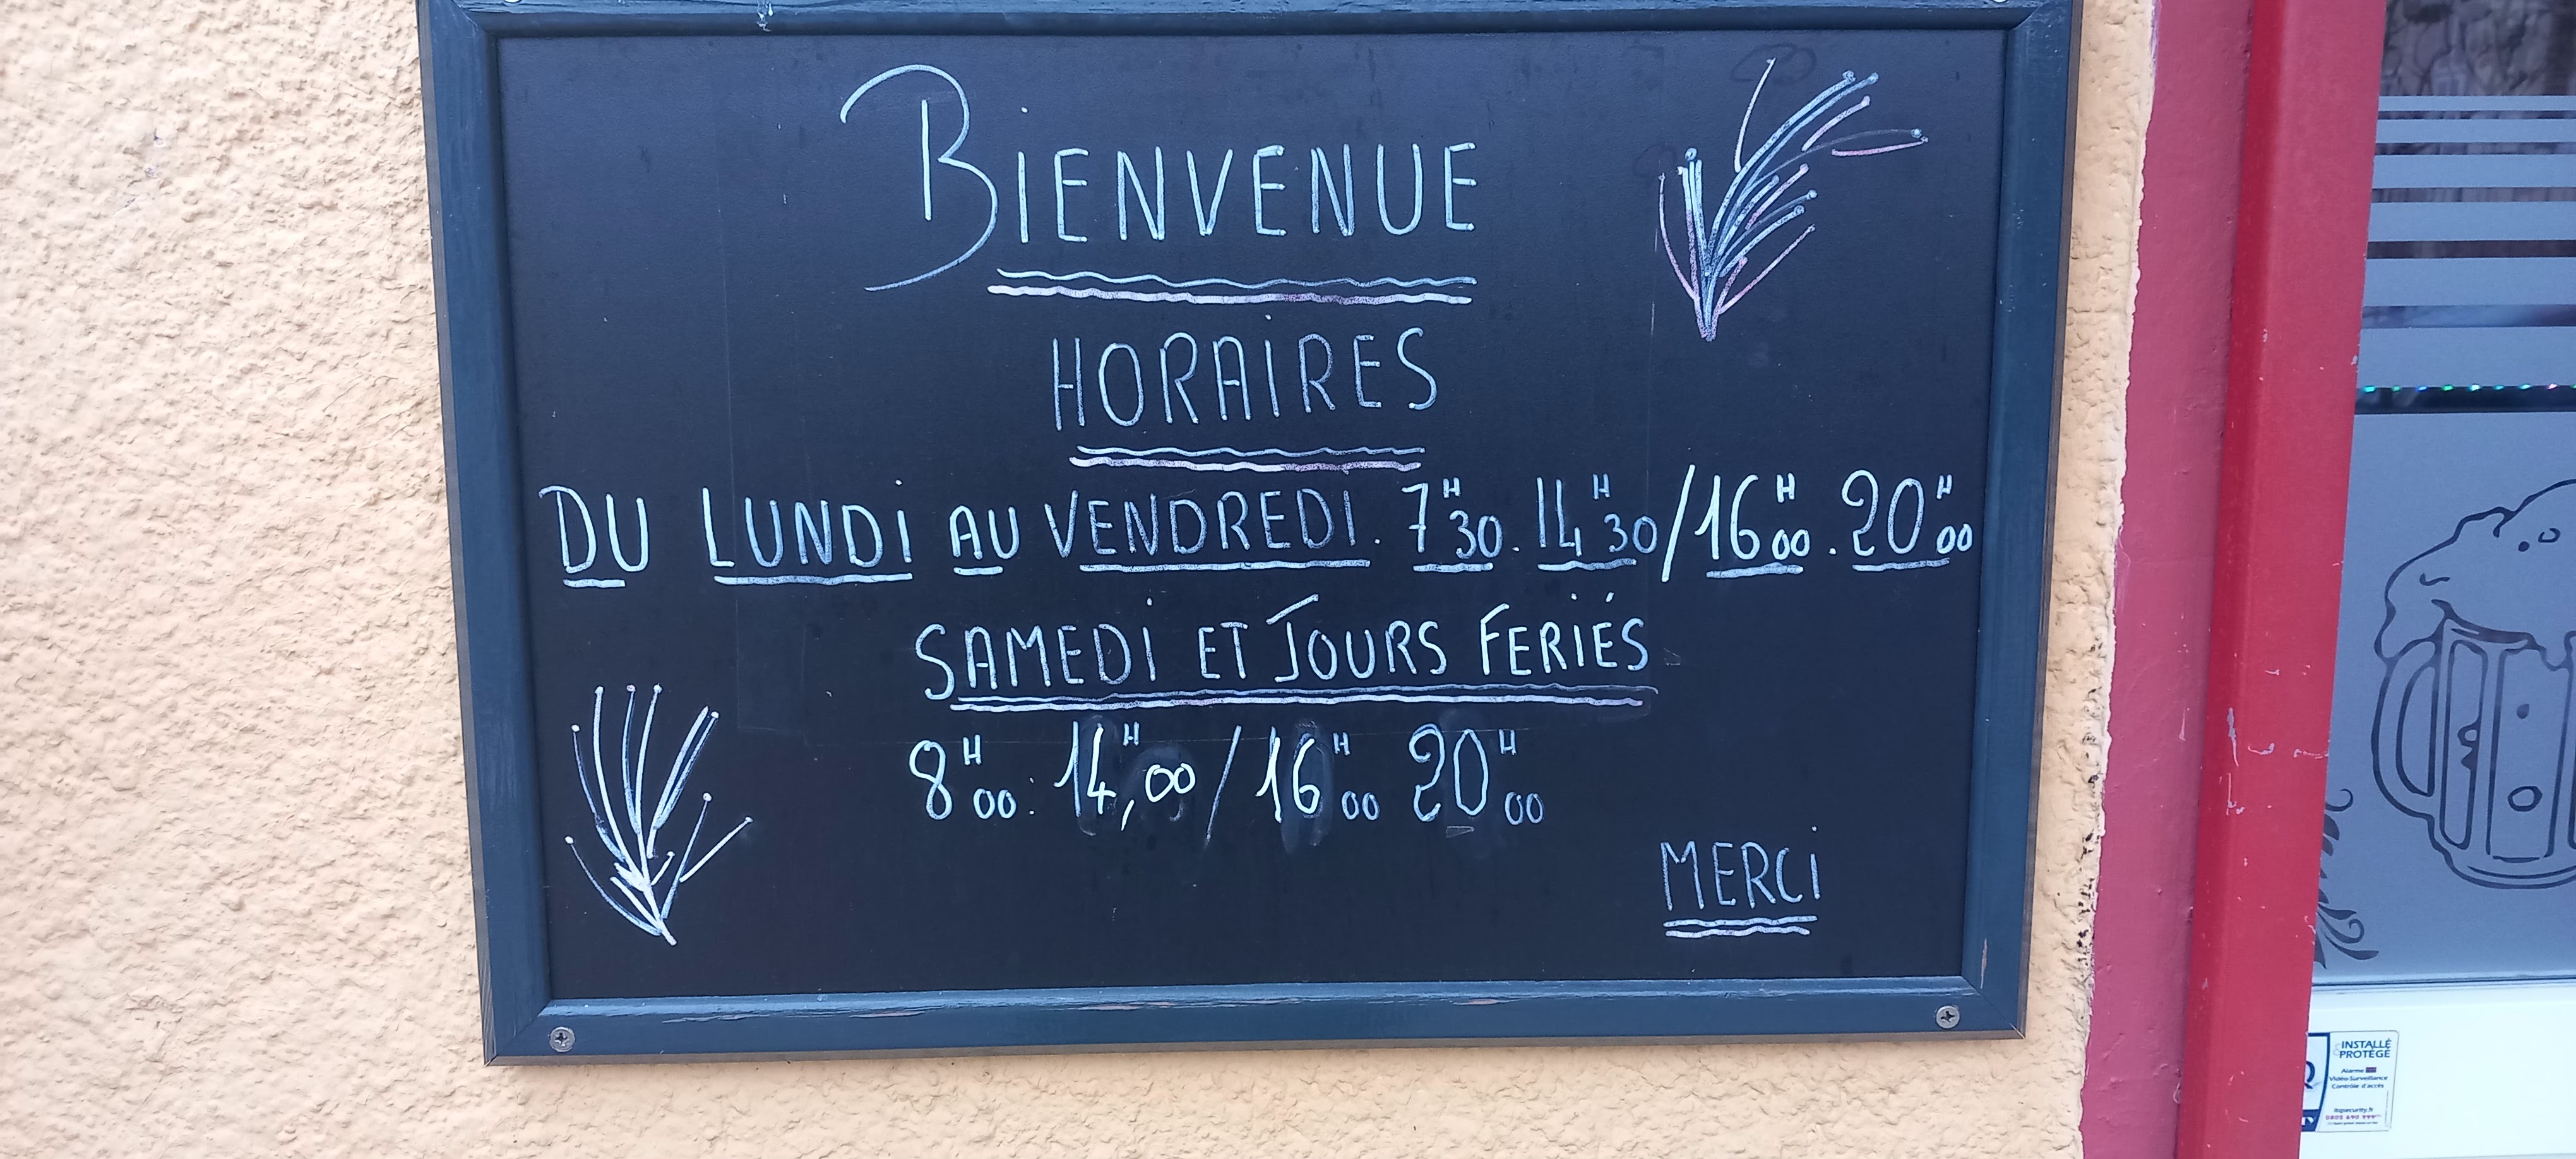 BIENVENUE
HORAIRES
DU LUNDI AU VENDREDI. 7H30. 14H30/16H00. 20H00
SAMEDI ET JOURS FERIÉS
8H00: 14H,00/16H00 20H00
MERCI
INSTALLÉ
PROTÉGÉ
Alarme
Vidéo-Surveillance
Contrôle d'accès